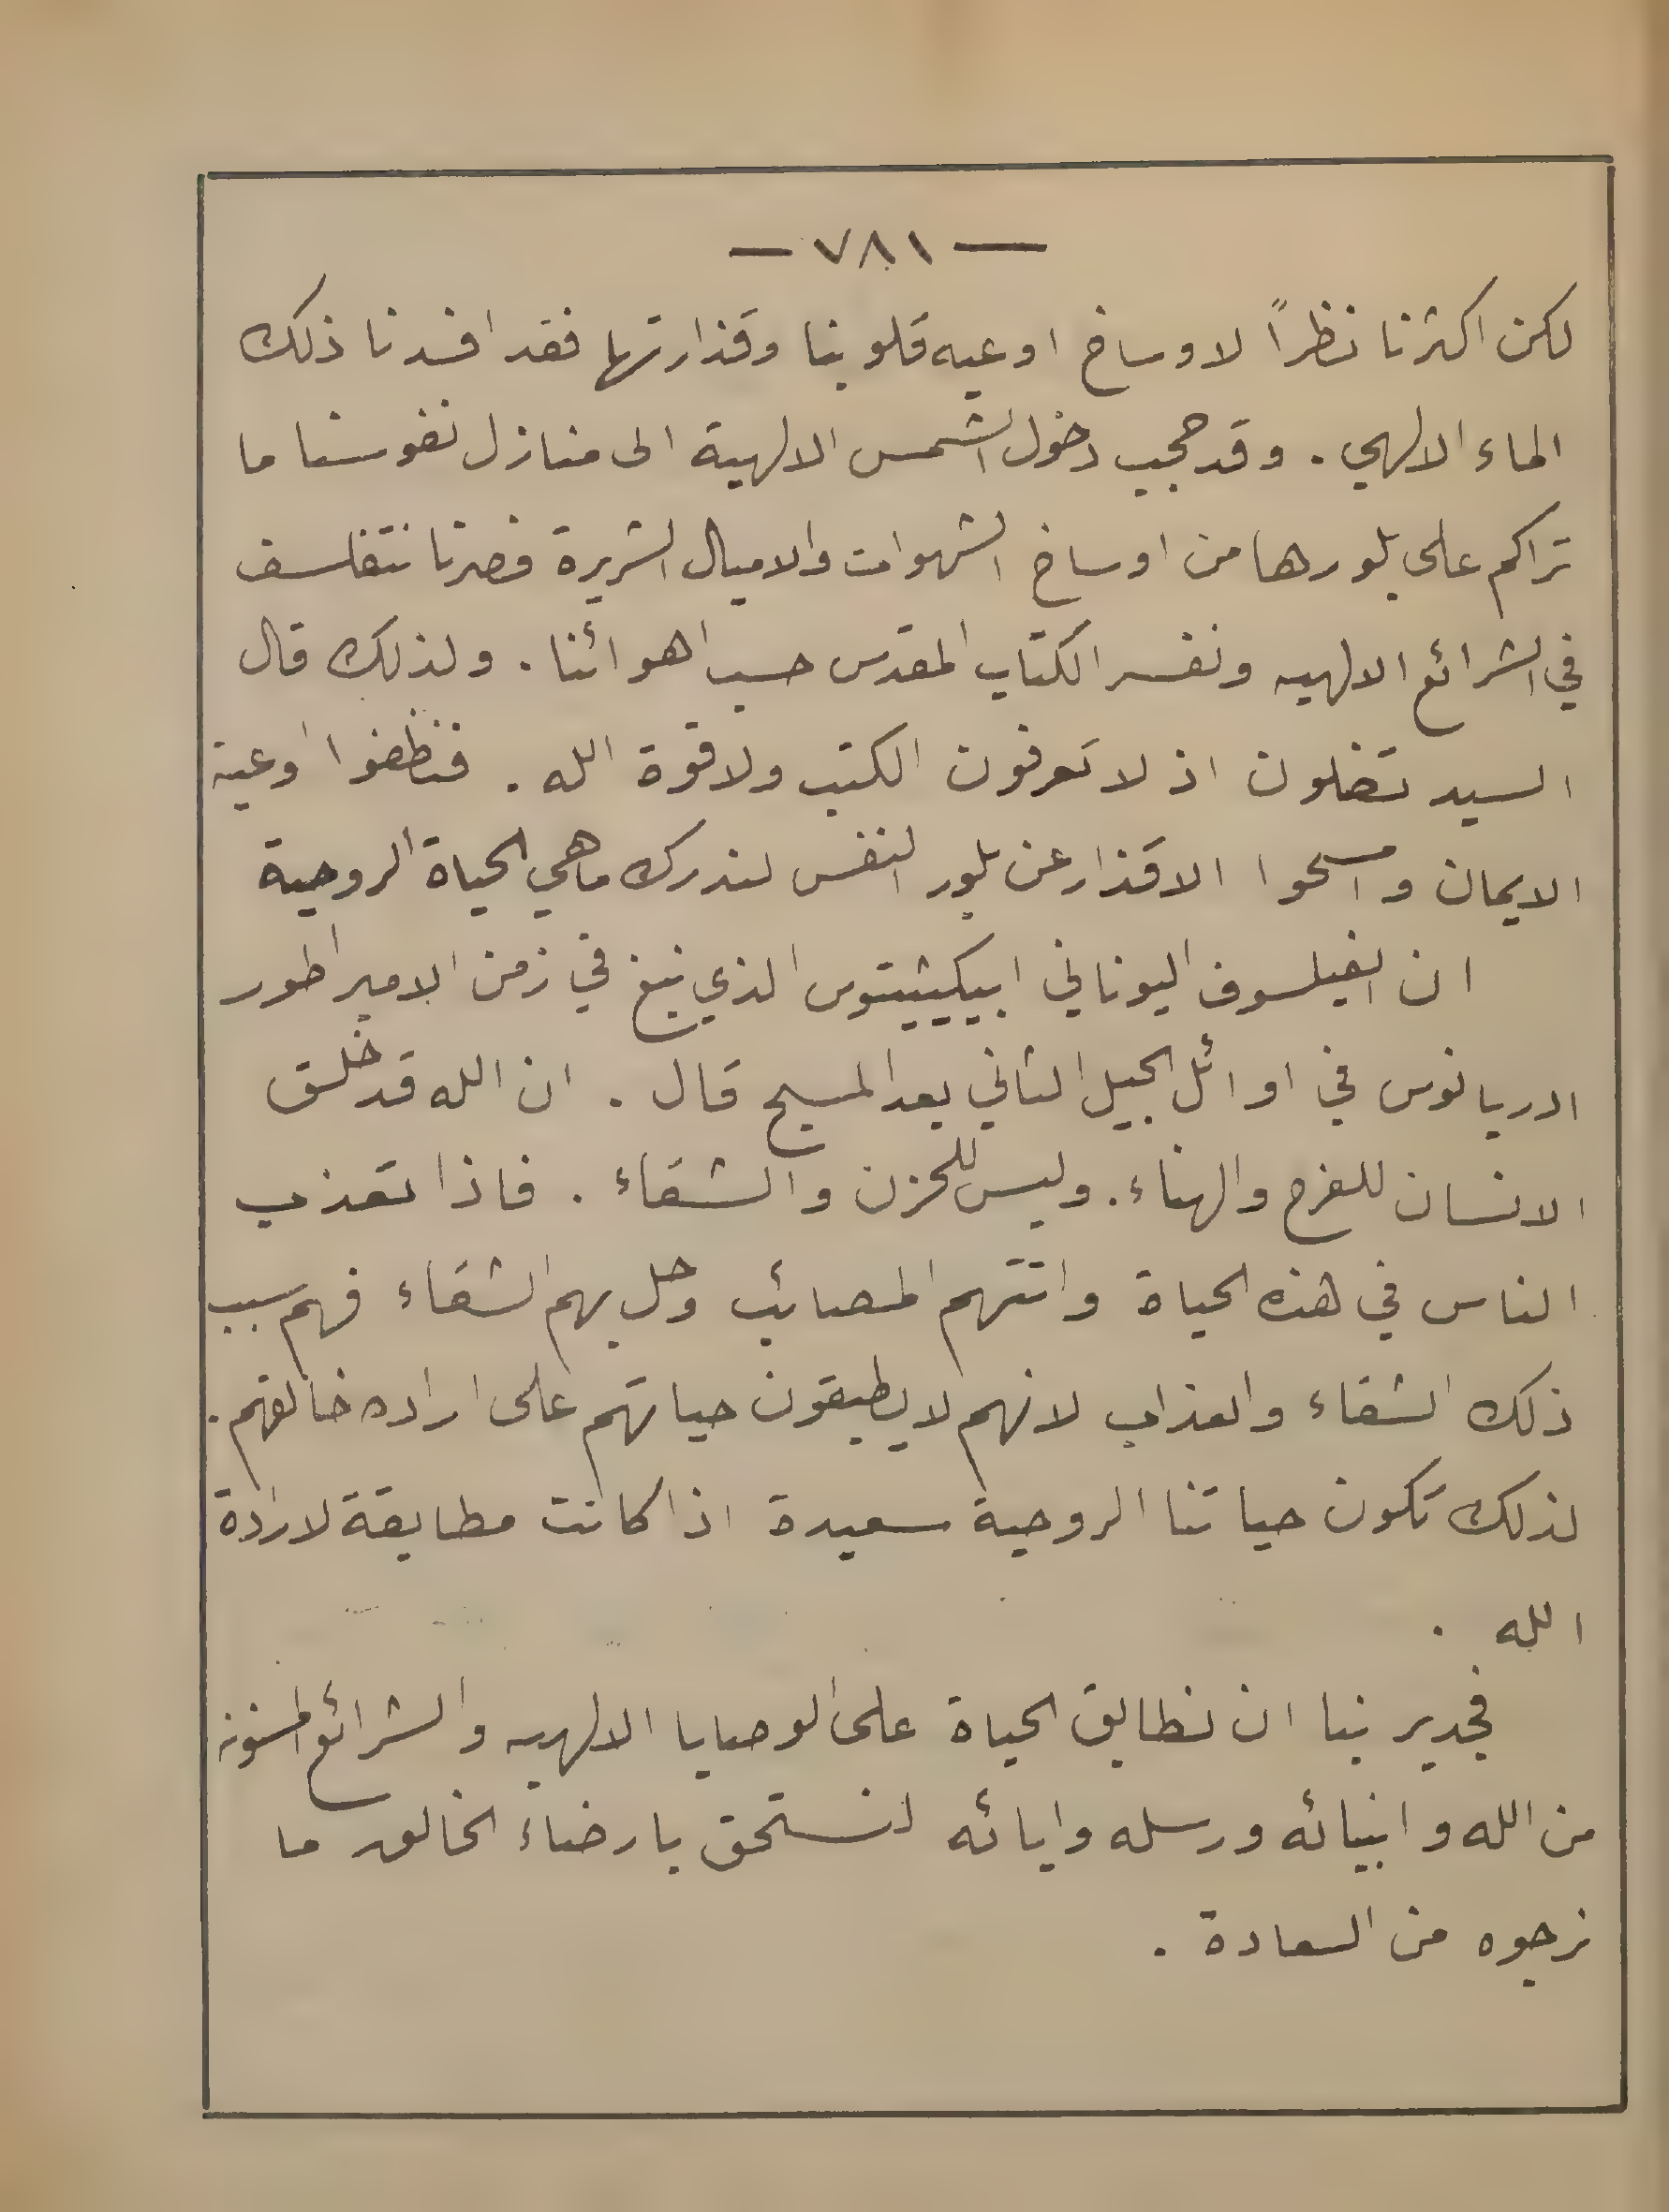 — ٧٨١ —
لكن اكثرنا نظراً لاوساخ اوعيه قلوبنا وقذارتها فقد افسدنا ذلك
الماء الالهي . وقد حجب دخول الشمس الالهية الى منازل نفوسنا ما
تراكم على بلورها من اوساخ الشهوات والاميال الشريرة فصرنا نتفلسف
في الشرائع الالهيه ونفسر الكتاب المقدس حسب اهوائنا . ولذلك قال
السيد تضلون اذ لا تعرفون الكتب ولا قوة الله . فنظفوا اوعية
الايمان وامسحوا الاقذار عن بلور النفس لندرك ماهي الحياة الروحية
ان الفيلسوف اليوناني ابيكيتيتوس الذي نبغ في زمن الامبراطور
ادريانوس في اوائل الجيل الثاني بعد المسيح قال . ان الله قد خلق
الانسان للفرح والهناء . وليس للحزن والشقاء . فاذا تعذب
الناس في هذه الحياة واتتهم المصائب وحل بهم الشقاء فهم سبب
ذلك الشقاء والعذاب لانهم لا يطبقون حياتهم على اراده خالقهم .
لذلك تكون حياتنا الروحية سعيدة اذا كانت مطابقة لارادة
الله .
فجدير بنا ان نطابق الحياة على الوصايا الالهيه والشرائع المسنونه
من الله وانبيائه ورسله وابائه لنستحق بارضاء الخالق ما
نرجوه من السعادة .